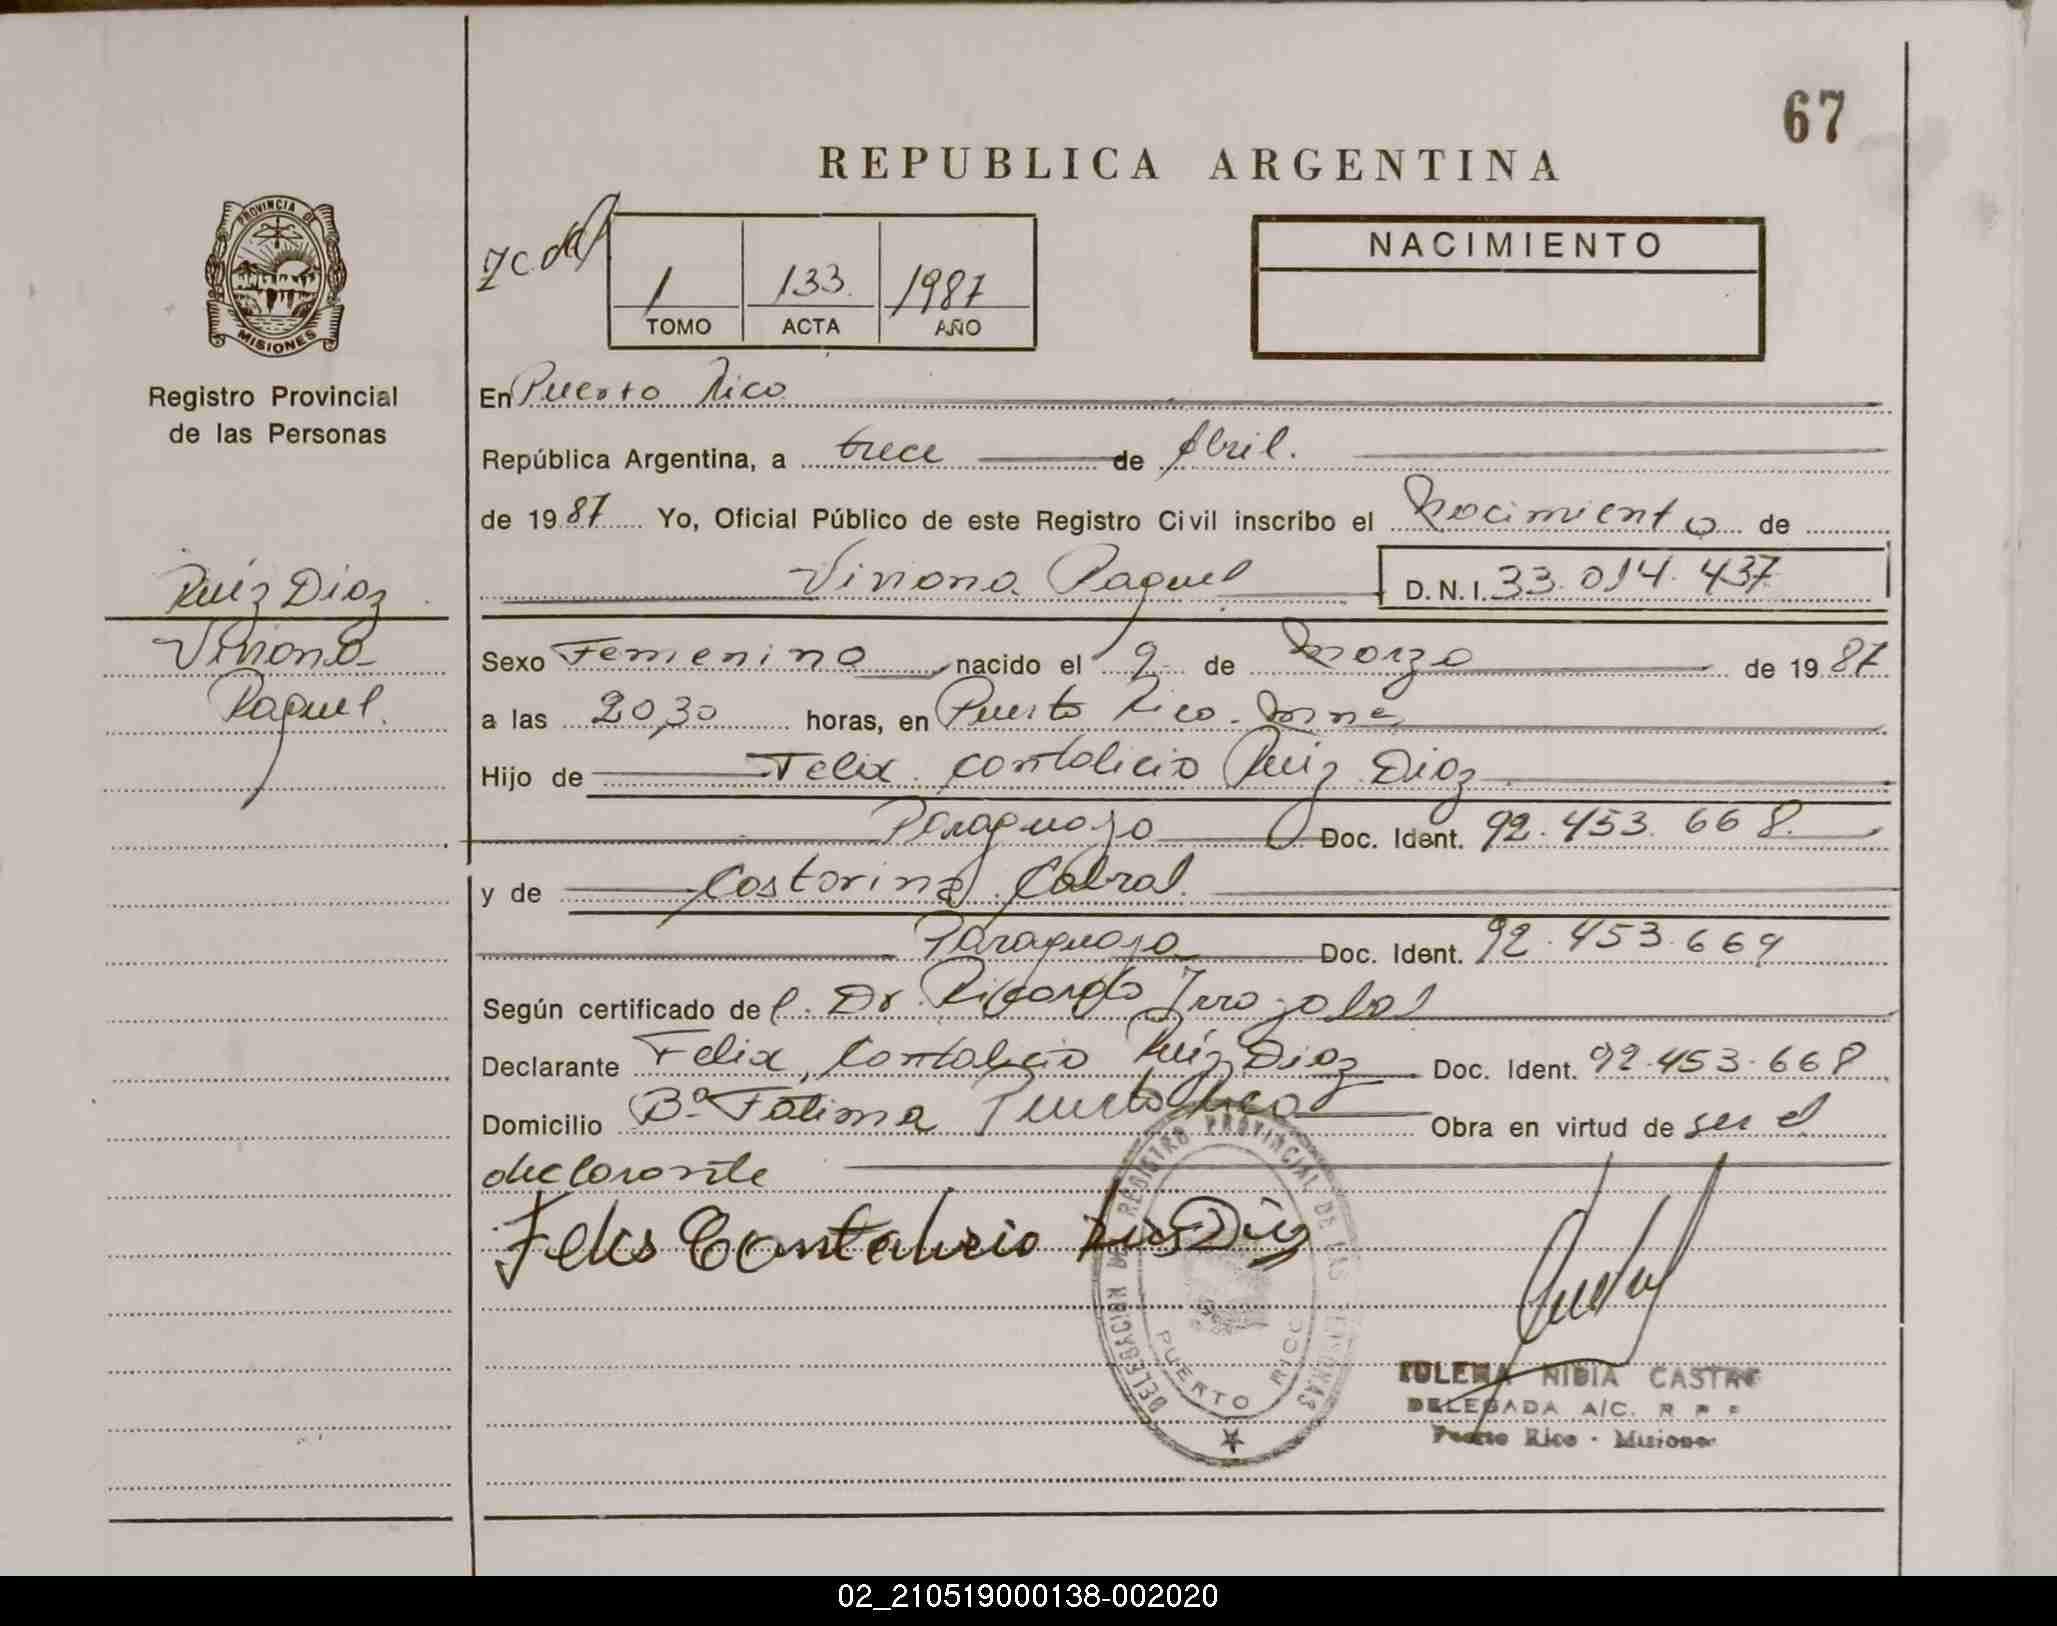 67
REPUBLICA ARGENTINA
PROVINCIA DE
MISIONES
Registro Provincial
de las Personas
1 133 1987
TOMO ACTA AÑO
NACIMIENTO
En Puerto Rico
República Argentina, a trece de Abril.
de 1987 Yo, Oficial Público de este Registro Civil inscribo el Nacimiento de
Viviana Raquel D.N.I. 33.014.437
Ruíz Díaz
Viviana
Raquel.
Sexo Femenino nacido el 9 de Marzo de 1987
a las 20,30 horas, en Puerto Rico. Mnes
Hijo de Felix Contalicio Ruíz Díaz
Paraguayo Doc. Ident. 92.453.668
y de Castorina Cabral.
Paraguaya Doc. Ident. 92.453.669
Según certificado del Dr. Ricardo Irrazabal
Declarante Felix Contalicio Ruíz Díaz Doc. Ident. 92.453.668
Domicilio Bº Fátima Puerto Rico Obra en virtud de ser el
declarante
Feliks Contalicio Ruis Dis
DELEGACION DE REGISTRO PROVINCIAL DE LAS PERSONAS
PUERTO RICO
NIDIA CASTRO
DELEGADA A/C. R P P
Puerto Rico - Misiones
02_210519000138-002020